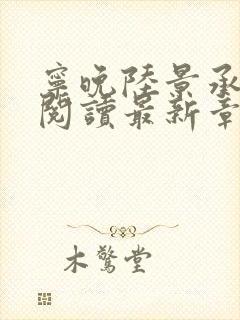 寧晚陸景承
閱讀最新章
木驚堂